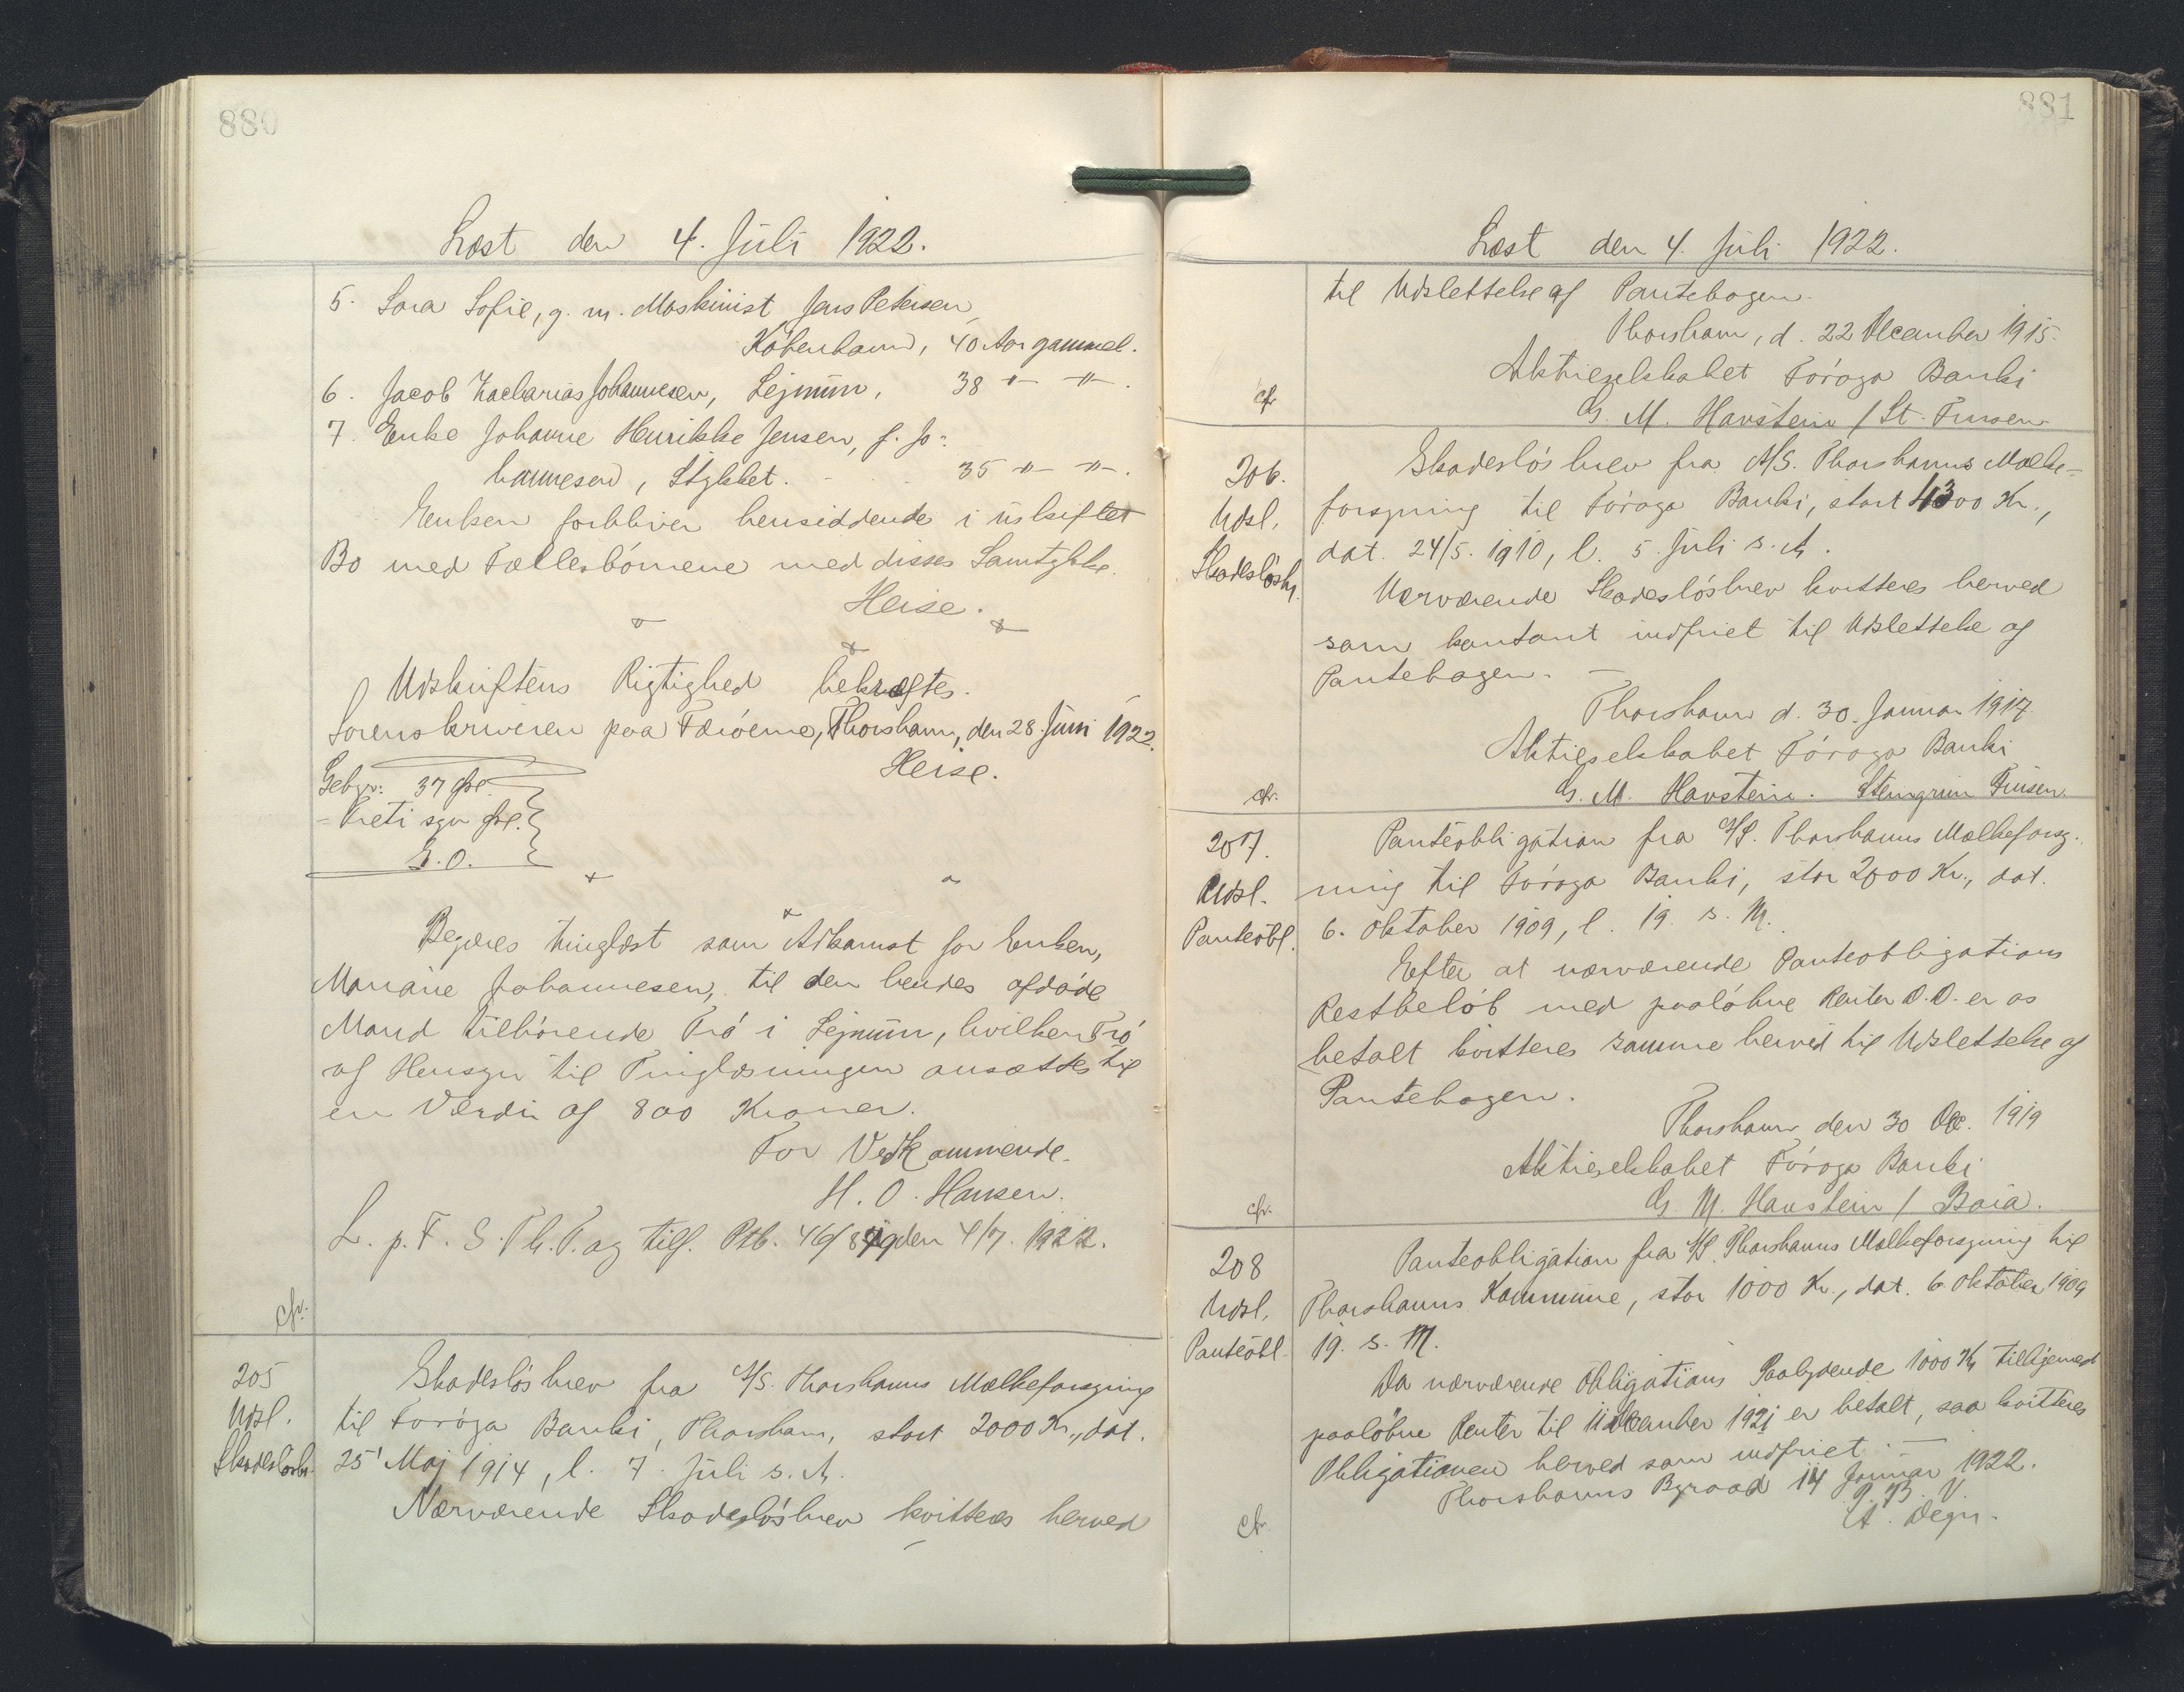 880
Læst den 4. Juli 1922.
5. Sara Sofie, g. m. Maskinist Jens Petersen,
København, 40 Aar gammel.
6. Jacob Zacharias Johannesen, Lejnum, 38 -"- -"-.
7. Enke Johanne Henrikke Jensen, f. Jo-
hannesen, Stykket. 35 -"- -"-.
Enken forbliver hensiddende i uskiftet
Bo med Fællesbørnene med disses Samtykke.
Heise.
Udskriftens Rigtighed bekræftes.
Sorenskriveren paa Færøerne, Thorshavn, den 28. Juni 1922.
Heise.
Gebyr: 37 Øre
= Treti syv Øre.
S.O.
Begæres tinglæst som Adkomst for Enken,
Mariane Johannesen, til den hendes afdøde
Mand tilhørende Trø i Lejnum, hvilken Trø
af Hensyn til Tinglæsningen ansættes til
en Værdi af 800 Kroner.
For Vedkommende.
H. O. Hansen.
L. p. F. S. Th. T. og tilf. Ptb. 46/879 den 4/7. 1922.
cfr.
205
Udsl.
Skadesløsbr.
Skadesløsbrev fra A/S. Thorshavns Mælkeforsyning
til Føroya Banki, Thorshavn, stort 2000 Kr., dat.
25' Maj 1914, l. 7. Juli s. A.
Nærværende Skadesløsbrev kvitteres herved
881
Læst den 4. Juli 1922.
til Udslettelse af Pantebogen.
Thorshavn, d. 22 December 1915.
Aktieselskabet Føroya Banki
cfr
G. M. Havstein / St. Finsen
206.
Udsl.
Skadesløsbr.
Skadesløsbrev fra A/S. Thorshavns Mælke-
forsyning til Føroya Banki, stort 4300 Kr.,
dat. 24/5. 1910, l. 5. Juli s. A.
Nærværende Skadesløsbrev kvitteres herved
som kontant indfriet til Udslettelse af
Pantebogen. —
Thorshavn d. 30. Januar 1917.
Aktieselskabet Føroya Banki
cfr.
G. M. Havstein. Steingrim Finsen.
207.
Udsl.
Panteobl.
Panteobligation fra A/S. Thorshavns Mælkeforsy-
ning til Føroya Banki, stor 2000 Kr., dat.
6. Oktober 1909, l. 19. s. M.
Efter at nærværende Panteobligations
Restbeløb med paaløbne Renter D.D. er os
betalt kvitteres samme herved til Udslettelse af
Pantebogen.
Thorshavn den 30 Dec. 1919
Aktieselskabet Føroya Banki
cfr.
G. M. Havstein /
208
Udsl.
Panteobl.
Panteobligation fra A/S. Thorshavns Mælkeforsyning til
Thorshavns Kommune, stor 1000 Kr., dat. 6 Oktober 1909
19. s. M.
Da nærværende Obligations Paalydende 1000 Kr tilligemed
paaløbne Renter til 11 December 1921 er betalt, saa kvitteres
Obligationen herved som indfriet. —
Thorshavns Byraad 14 Januar 1922.
P. B. V.
A. Degn.
cfr.